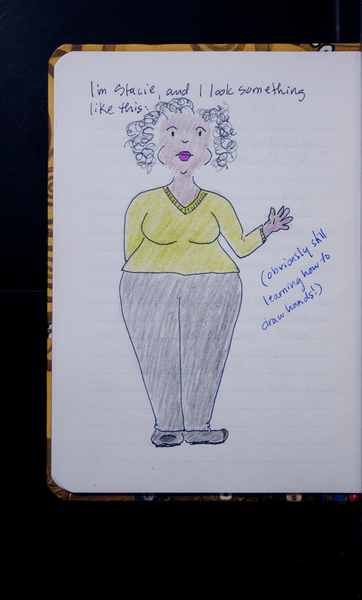 I'm Stacie, and I look something
like this:
(obviously still
learning how to
draw hands!)